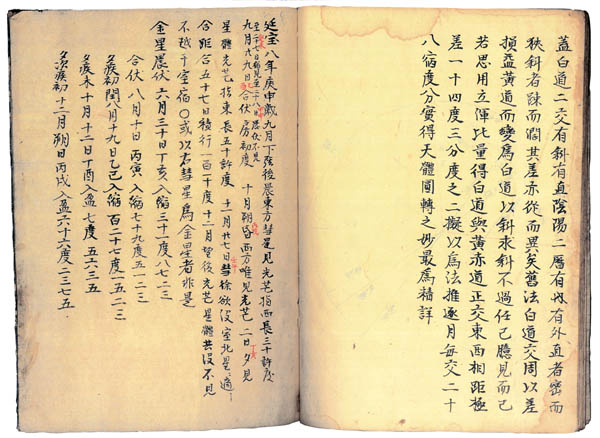 蓋白道二交有斜有直陰陽二曆有内有外直者密而
狹斜者踈而濶其差亦從而異矣舊法白道交周以差
損益黄道而變爲白道以斜求斜不過任己臆見而已
若思用立渾比量得白道與黄赤道正交東西相距極
差一十四度三分度之二擬以爲法推逐月每交二十
八宿度分實得天體圓轉之妙最爲精詳
延宝八年庚申歳九月下落後晨東方彗星見光芒指西長三十許度
九月九日合伏房初度 十月朔昏西方唯見光芒 二日夕見
星體光芒指東長五十許度 十一月廿七日彗徐欲没室北星
合距合五十七日積行一百一十度 十二月望後光芒星體共没不見
不越于室宿〇或以右彗星爲金星者非是
金星晨伏 六月三十日丁亥入縮三十一度〇八二三
合伏 八月十日丙寅入縮七十九度五一二三
夕疾初 閏八月十九日乙巳入縮百二十七度一五二三
夕疾末 十月十二日丁酉入盈七度五六三五
夕次疾初 十二月朔日丙戌入盈六十六度二三七五